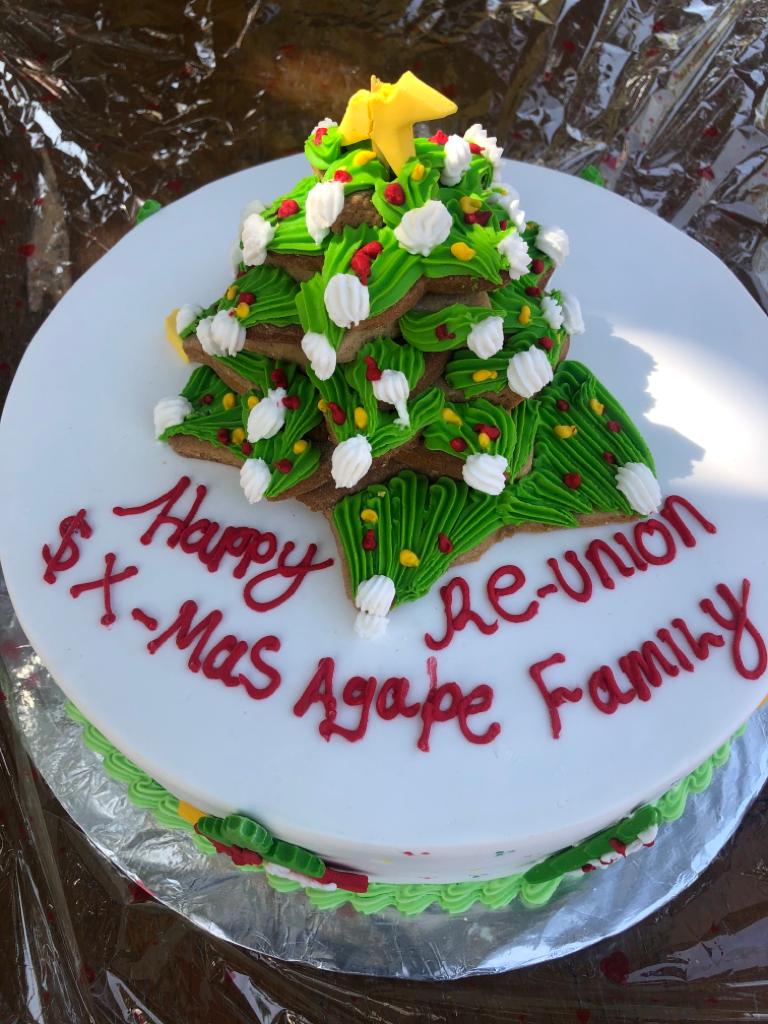 Happy Re-union
$ X-Mas Agape Family